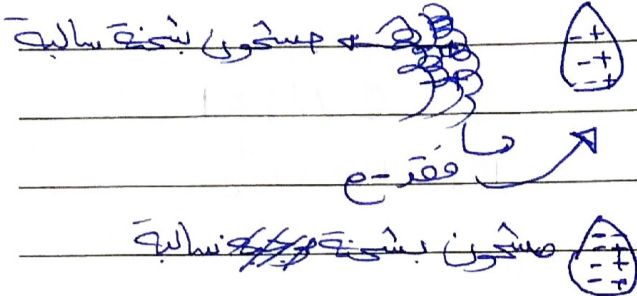 مشحون بشحنة سالبة
فقد -e
مشحون بشحنة سالبة